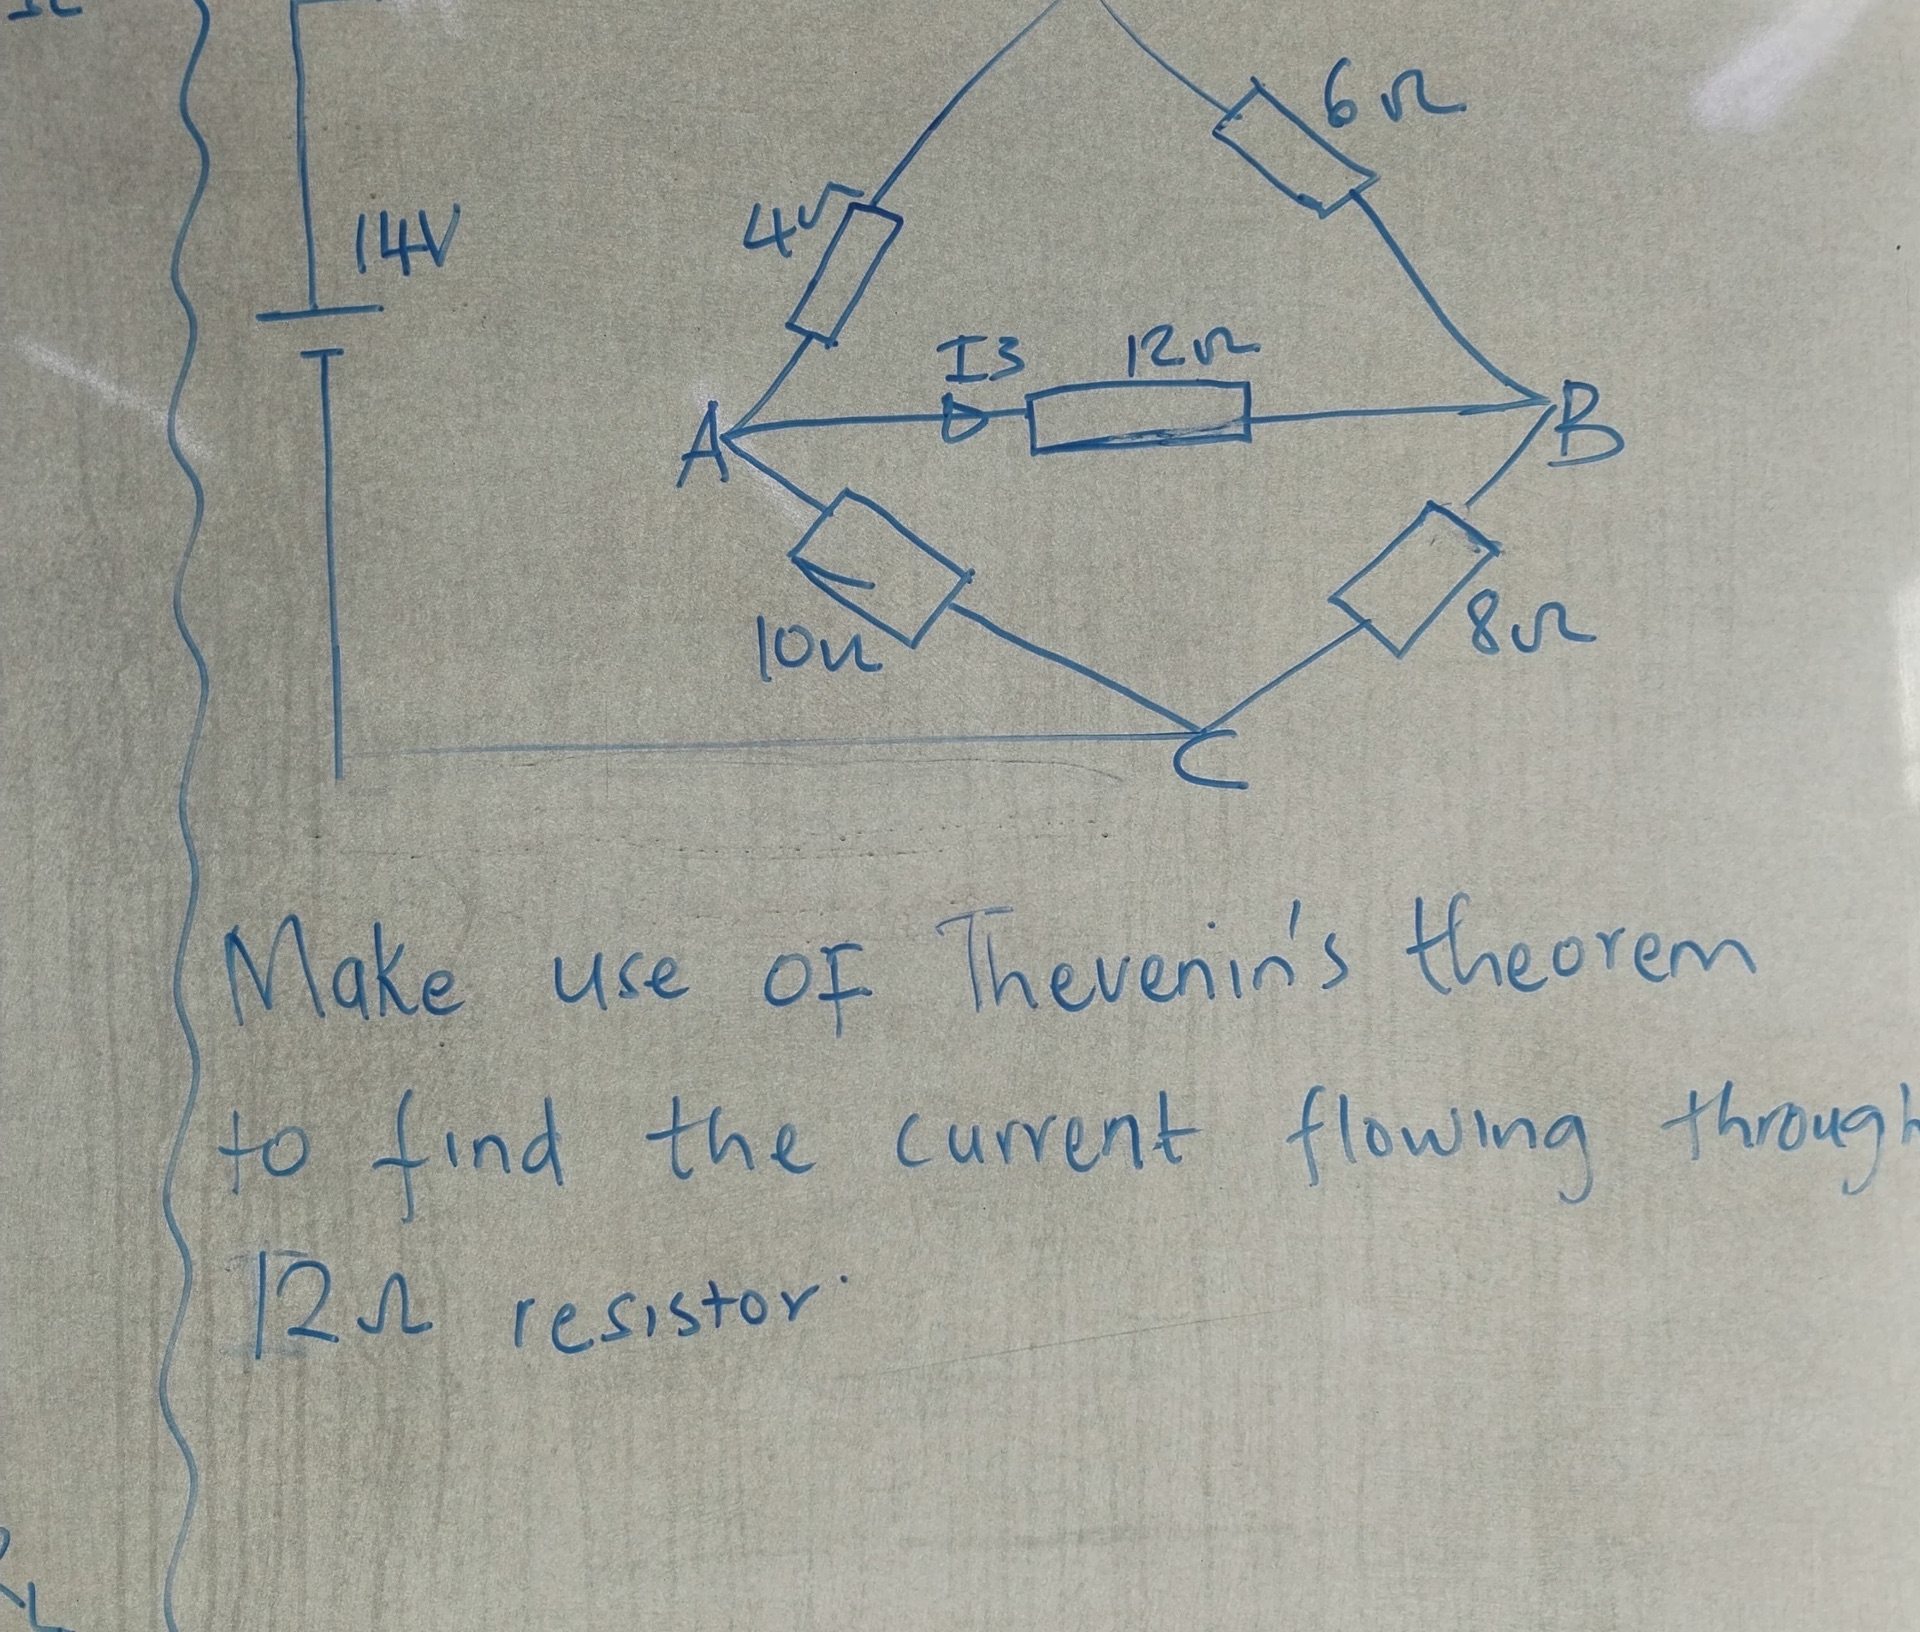 14V
4Ω
6Ω
I3 12Ω
A
B
10Ω
8Ω
C
Make use of Thevenin's theorem
to find the current flowing through
12Ω resistor.